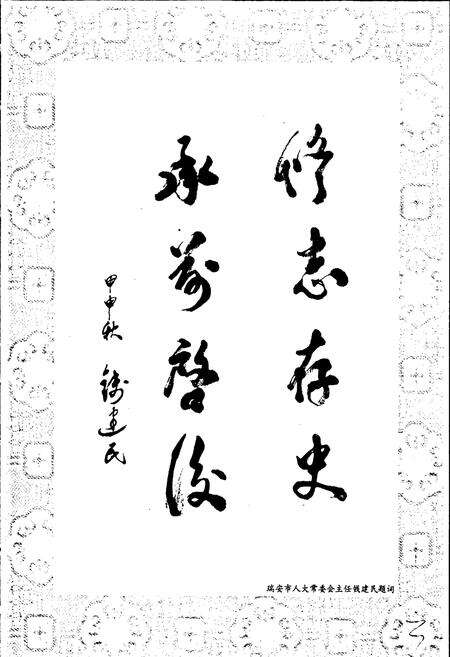 修志存史
承前启后
甲申秋 钱建民
瑞安市人大常委会主任钱建民题词